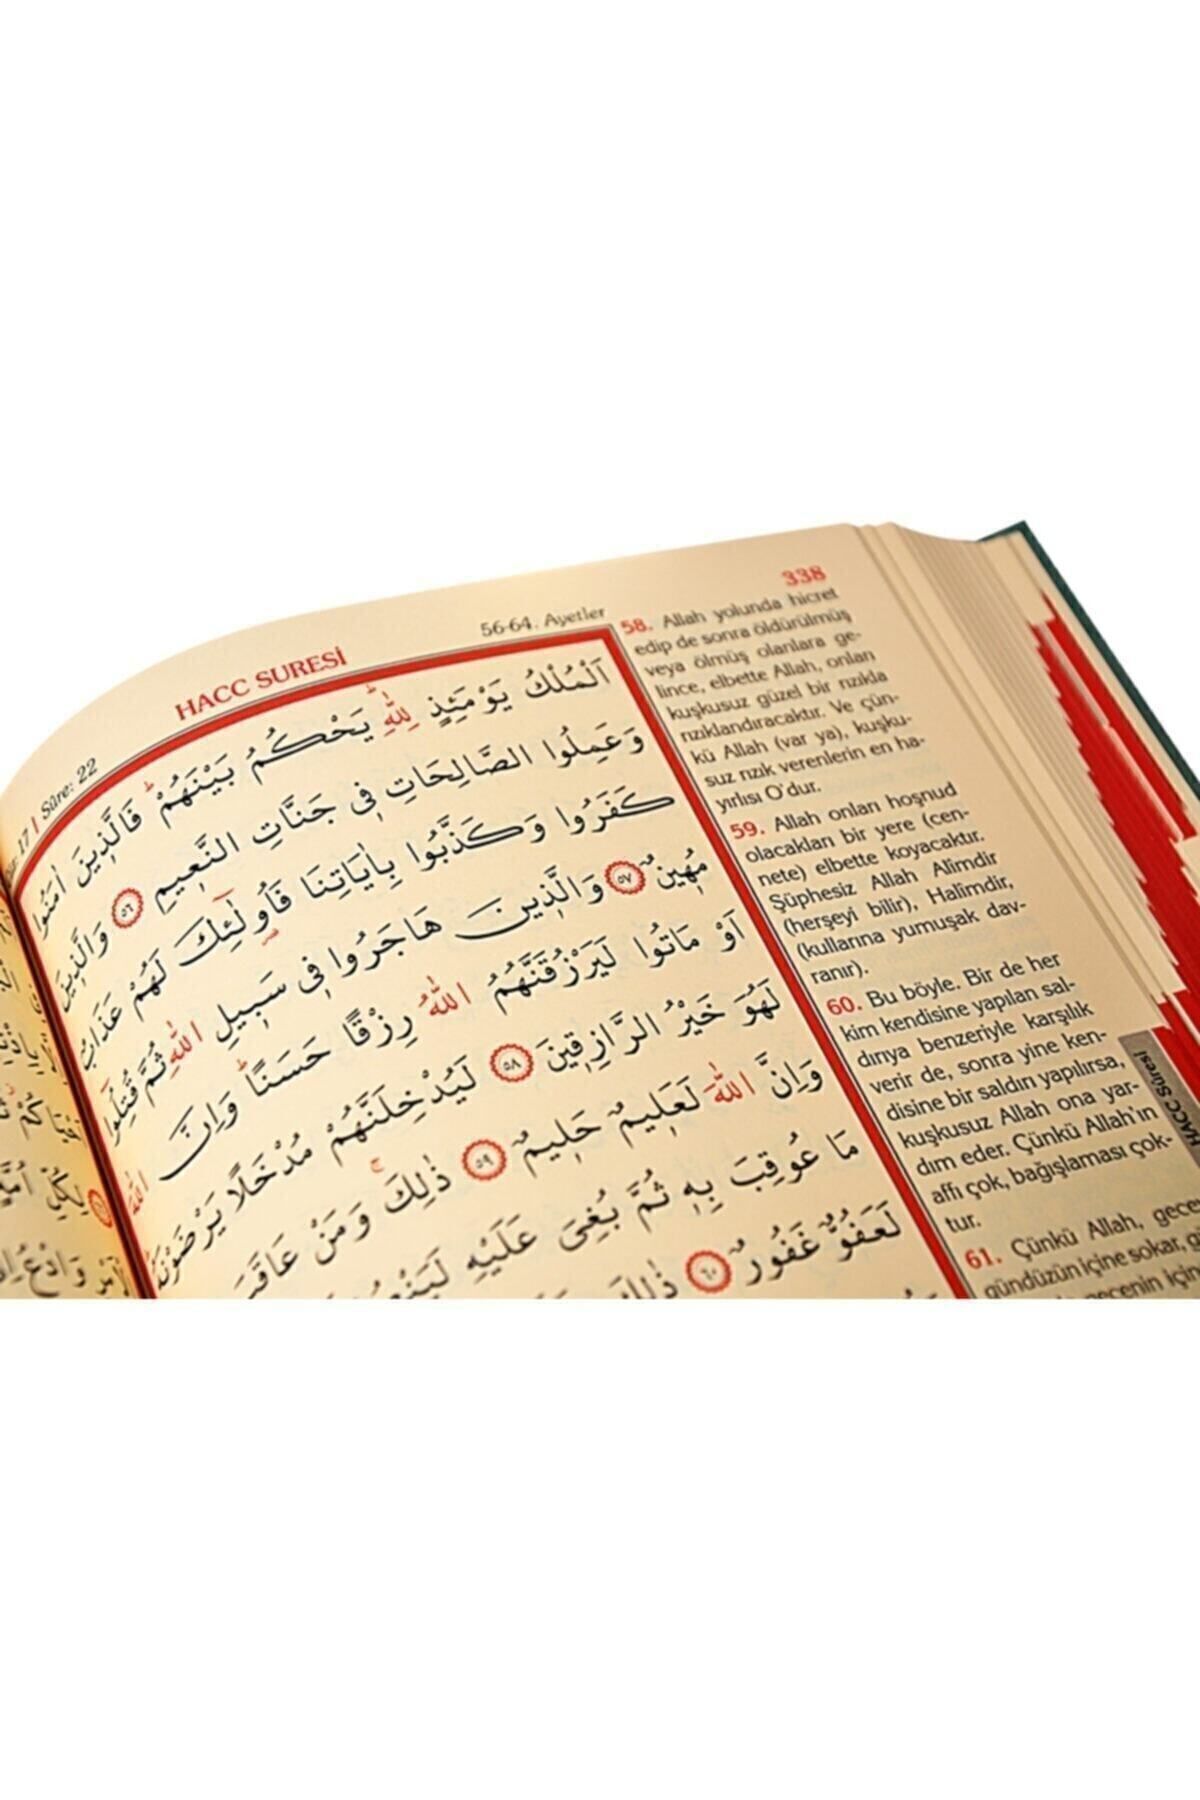 338
56-64. Ayetler
HACC SURESİ
17 | Sûre: 22
اَلْمُلْكُ يَوْمَئِذٍ لِلّٰهِ يَحْكُمُ بَيْنَهُمْ فَالَّذِينَ اٰمَنُوا
وَعَمِلُوا الصَّالِحَاتِ فِي جَنَّاتِ النَّعِيمِ ٥٦ وَالَّذِينَ
كَفَرُوا وَكَذَّبُوا بِاٰيَاتِنَا فَاُولٰٓئِكَ لَهُمْ عَذَابٌ
مُهِينٌ ٥٧ وَالَّذِينَ هَاجَرُوا فِي سَبِيلِ اللّٰهِ ثُمَّ قُتِلُوا
اَوْ مَاتُوا لَيَرْزُقَنَّهُمُ اللّٰهُ رِزْقًا حَسَنًا وَاِنَّ اللّٰهَ
لَهُوَ خَيْرُ الرَّازِقِينَ ٥٨ لَيُدْخِلَنَّهُمْ مُدْخَلًا يَرْضَوْنَهُ
وَاِنَّ اللّٰهَ لَعَلِيمٌ حَلِيمٌ ٥٩ ذٰلِكَ وَمَنْ عَاقَبَ
مَا عُوقِبَ بِهِ ثُمَّ بُغِيَ عَلَيْهِ
لَعَفُوٌّ غَفُورٌ ٦٠ ذٰلِكَ
58. Allah yolunda hicret
edip de sonra öldürülmüş
veya ölmüş olanlara ge-
lince, elbette Allah, onları
kuşkusuz güzel bir rızıkla
rızıklandıracaktır. Ve çün-
kü Allah (var ya), kuşku-
suz rızık verenlerin en ha-
yırlısı O'dur.
59. Allah onları hoşnud
olacakları bir yere (cen-
nete) elbette koyacaktır.
Şüphesiz Allah Alîmdir
(herşeyi bilir), Halîmdir,
(kullarına yumuşak dav-
ranır).
60. Bu böyle. Bir de her
kim kendisine yapılan sal-
dırıya benzeriyle karşılık
verir de, sonra yine ken-
disine bir saldırı yapılırsa,
kuşkusuz Allah ona yar-
dım eder. Çünkü Allah'ın
affı çok, bağışlaması çok-
tur.
61. Çünkü Allah, gecey
gündüzün içine sokar, g
gecenin için
HACC Sûresi